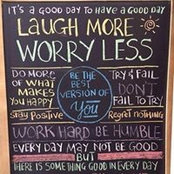 IT'S A GOOD DAY TO HAVE A GOOD DAY
LAUGH MORE
WORRY LESS
DO MORE
OF WHAT
MAKES
YOU HAPPY
BE THE
BEST
VERSION OF
YOU
TRY & FAIL
DON'T
FAIL TO TRY
Stay Positive
Regret nothing
WORK HARD BE HUMBLE
EVERY DAY MAY NOT BE GOOD
BUT
THERE IS SOMETHING GOOD IN EVERY DAY